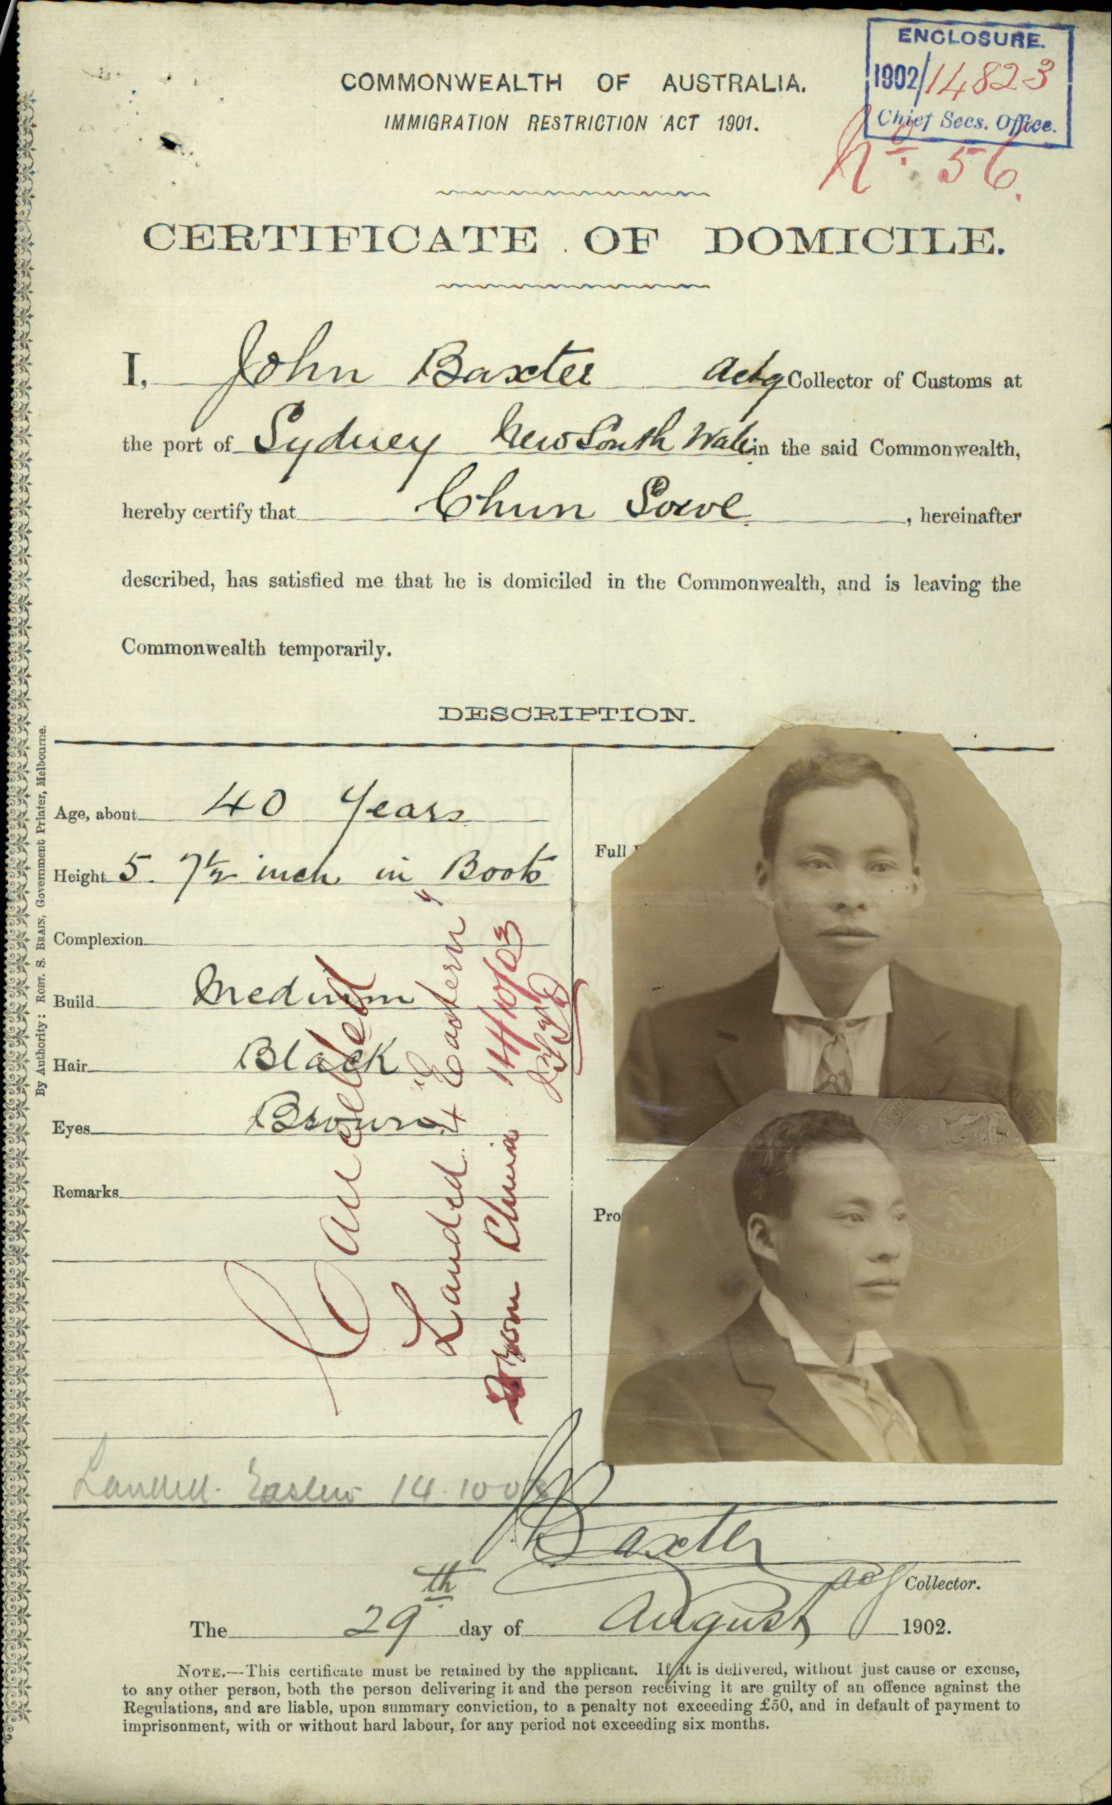 ENCLOSURE.
1902/14823
Chief Secs. Office.
No. 56.
COMMONWEALTH OF AUSTRALIA.
IMMIGRATION RESTRICTION ACT 1901.
CERTIFICATE OF DOMICILE.
I, John Baxter Actg Collector of Customs at
the port of Sydney New South Wales in the said Commonwealth,
hereby certify that Chun Sowe, hereinafter
described, has satisfied me that he is domiciled in the Commonwealth, and is leaving the
Commonwealth temporarily.
DESCRIPTION.
Age, about 40 Years
Height 5. 7½ inch in Boots
Complexion
Build Medium
Hair Black
Eyes Brown
Remarks
Full
Pro
Cancelled
Landed "Eastern"
from China 14/10/03
Landed. Eastern 14.10.03
J Baxter
actg Collector.
The 29th day of August 1902.
NOTE.—This certificate must be retained by the applicant. If it is delivered, without just cause or excuse,
to any other person, both the person delivering it and the person receiving it are guilty of an offence against the
Regulations, and are liable, upon summary conviction, to a penalty not exceeding £50, and in default of payment to
imprisonment, with or without hard labour, for any period not exceeding six months.
By Authority: ROBT. S. BRAIN, Government Printer, Melbourne.